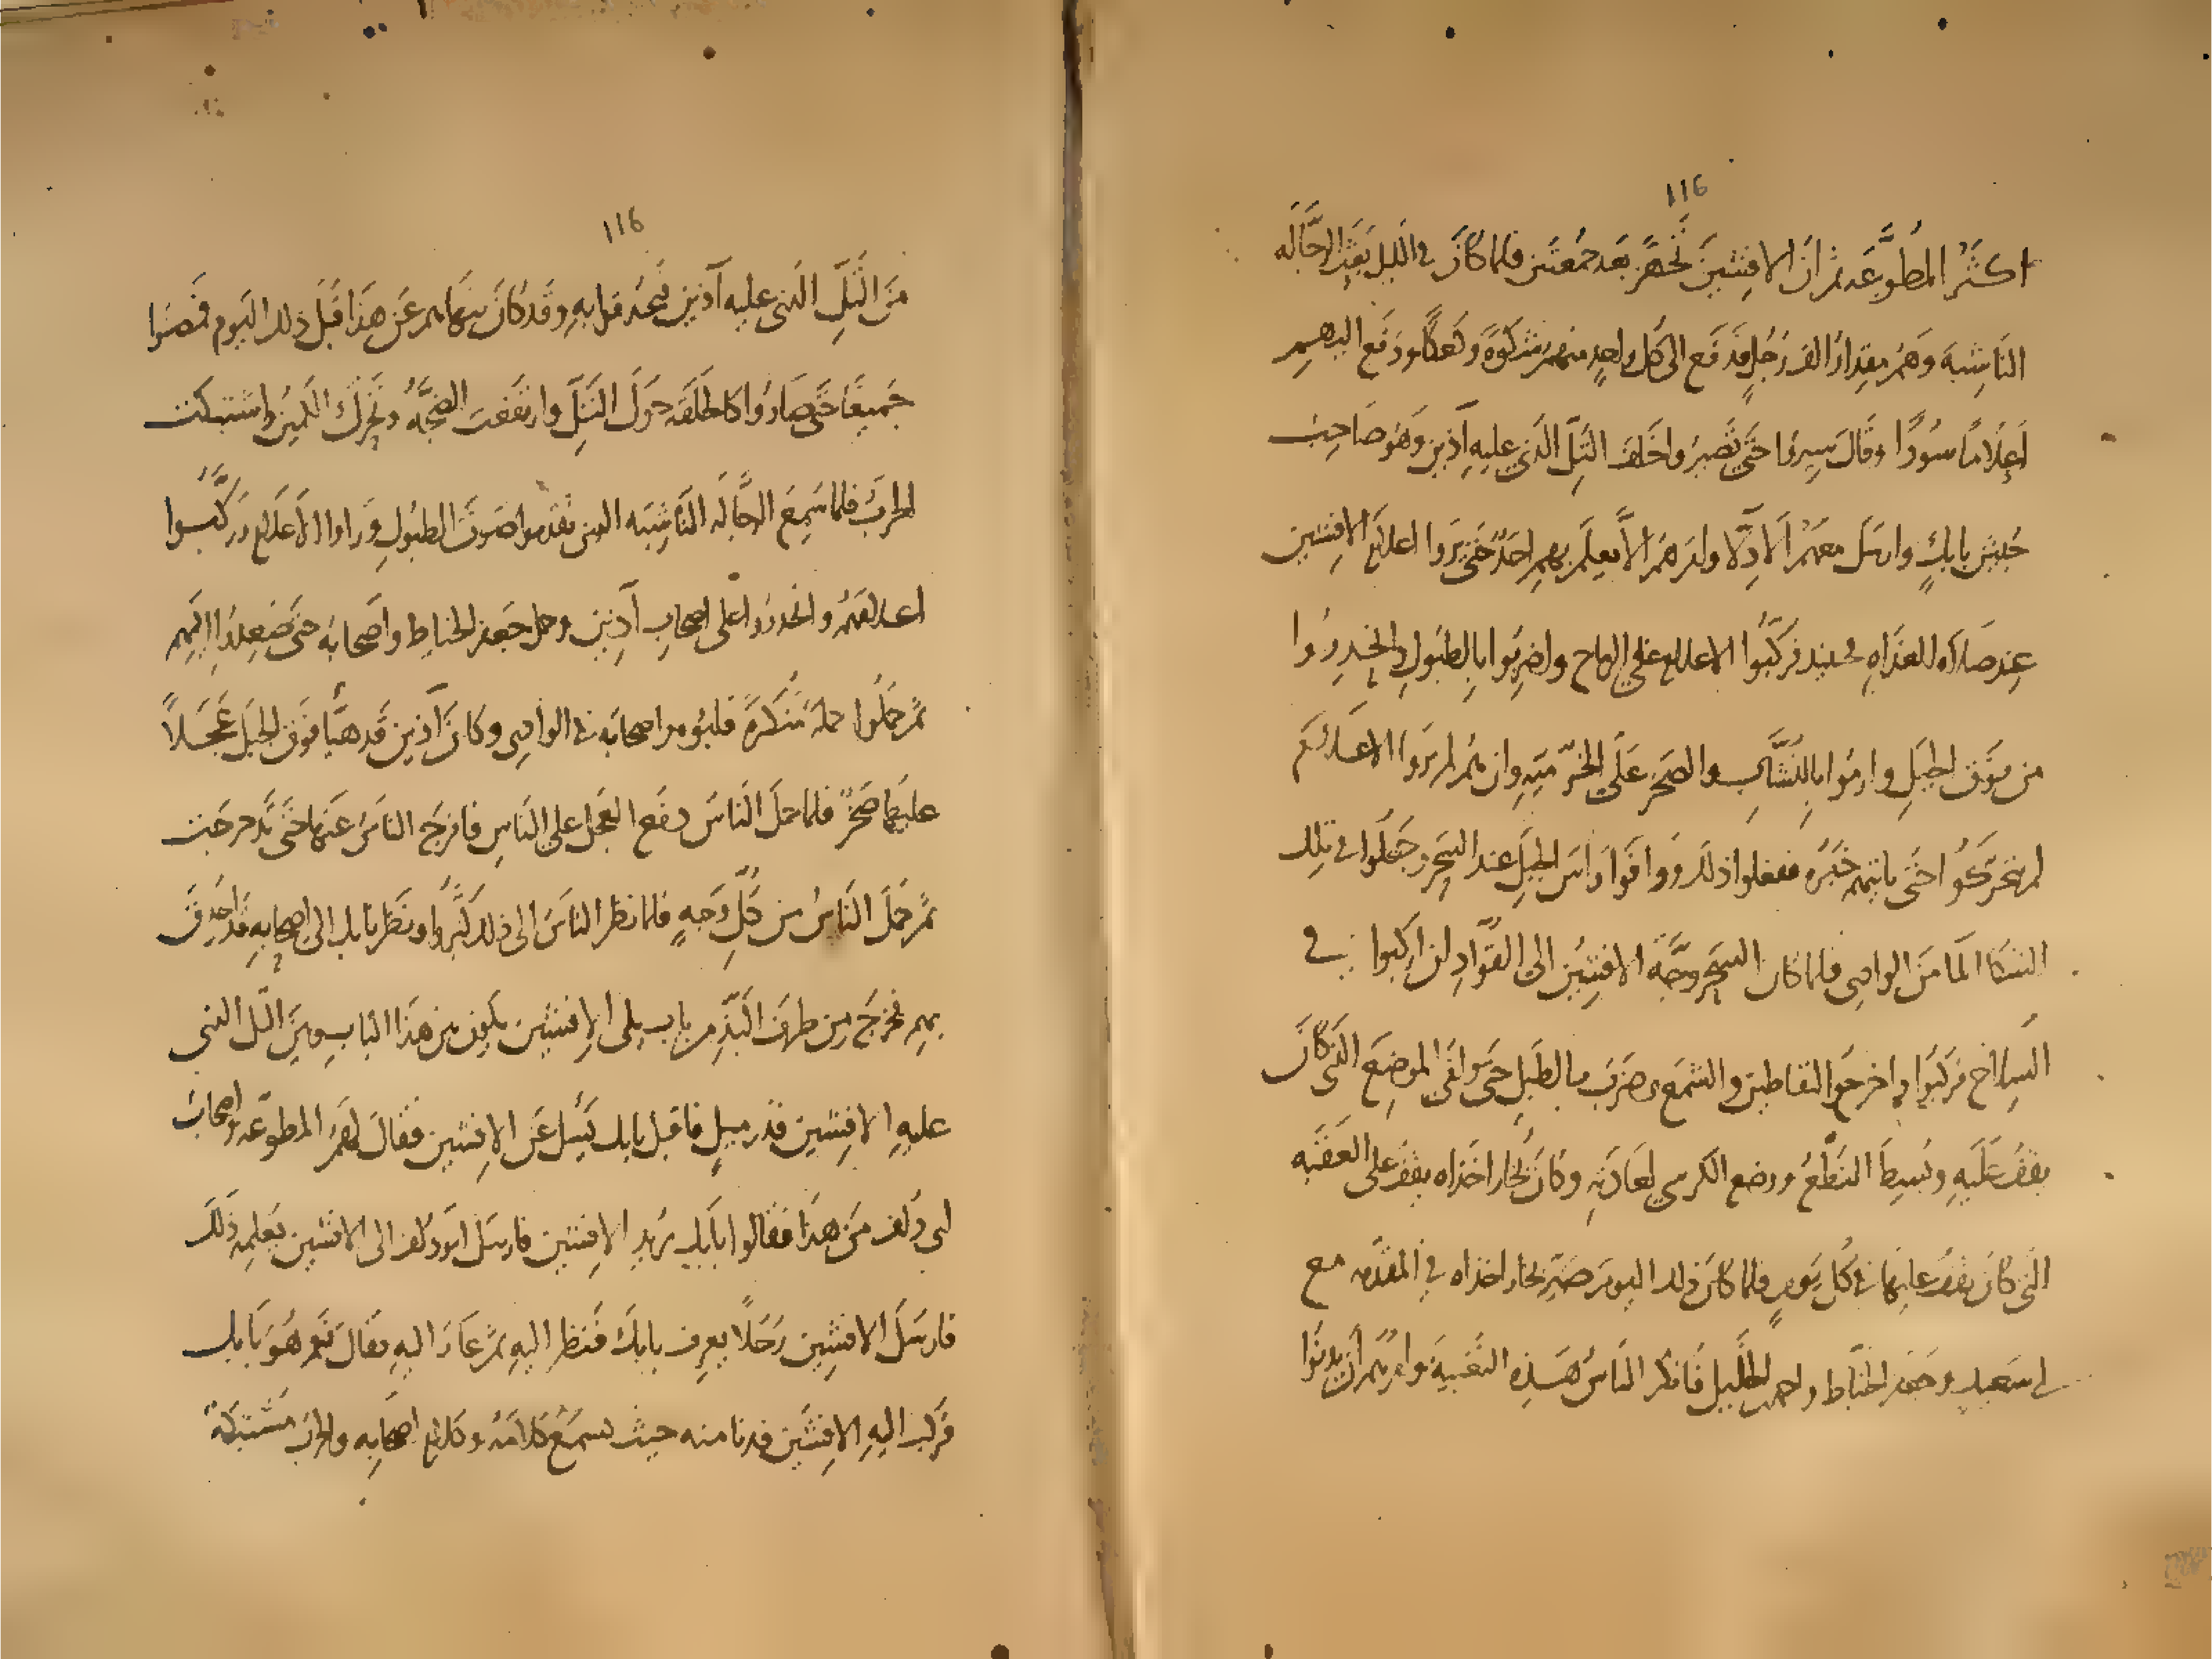 116
اكثر المطوعه ثم ان الافشين تجهز بعد جمعتين فلما كان في الليل بعث الرجاله
الناشبه وهم مقدار الف رجل فدفع الى كل واحد منهم شكوة وكعكا ودفع اليهم
اعلاما سودا وقال سيروا حتى تصيروا خلف التل الذي عليه آذين وهو صاحب
جيش بابك وارسل معهم الادلا وامرهم الا يعلم بهم احد حتى يروا اعلام الافشين
عند صلاه الغداه فحينيذ فركبوا الاعلام على الرماح واضربوا بالطبول وانحدروا
من فوق الجبل وارموا بالنشاب والصخر على الخرميه وان هم لم يروا الاعلام
لم يتحركوا حتى ياتيهم خبره ففعلوا ذلك ووافوا راس الجبل عند السحر وجعلوا في تلك
الشكا الما من الوادي فلما كان السحر وجه الافشين الى القواد ان اركبوا في
السلاح فركبوا واخرجوا النفاطين والشمع وضرب بالطبل حتى وافى الموضع الذي كان
يقف عليه وبسط النطع ووضع الكرسي لعادته وكان بخار اخذاه يقف على العقبه
التي كان يقف عليها في كل يوم فلما كان ذلك اليوم صير بخار اخذاه في المقدمه مع
ابي سعيد وجعفر الخياط واحمد الخليل فانكر الناس هذه التعبيه وامرهم ان يدنوا
116
من التل الذي عليه آذين فيحدقوا به وقد كان ينهاهم عن هذا قبل ذلك اليوم فمضوا
جميعا حتى صاروا كالحلقه حول التل وارتفعت الضجه وتحرك الكمين واشتبكت
الحرب فلما سمع الرجاله الناشبه الذين تقدموا صوت الطبول وراوا الاعلام ركبوا
اعلامهم وانحدروا على اصحاب آذين وحمل جعفر الخياط واصحابه حتى صعدوا اليهم
ثم حملوا حملة منكرة قلبوه واصحابه في الوادي وكان آذين قد هيأ فوق الجبل عجلا
عليها صخر فلما حمل الناس دفع العجل على الناس فافرج الناس عنها حتى تدحرجت
ثم حمل الناس من كل وجه فلما نظر الناس الى ذلك كبروا ونظر بابك الى اصحابه قد احدق
بهم فخرج من طرف البذ من باب يلي الافشين يكون بين هذا الباب وبين التل الذي
عليه الافشين قدر ميل فاقبل بابك يسل عن الافشين فقال لهم المطوعه واصحاب
ابي دلف من هذا فقالوا بابك يريد الافشين فارسل ابو دلف الى الافشين يعلمه ذلك
فارسل الافشين رجلا يعرف بابك فنظر اليه ثم عاد اليه فقال نعم هو بابك
فركب اليه الافشين فدنا منه حيث يسمع كلامه وكلام اصحابه والحرب مشتبكة